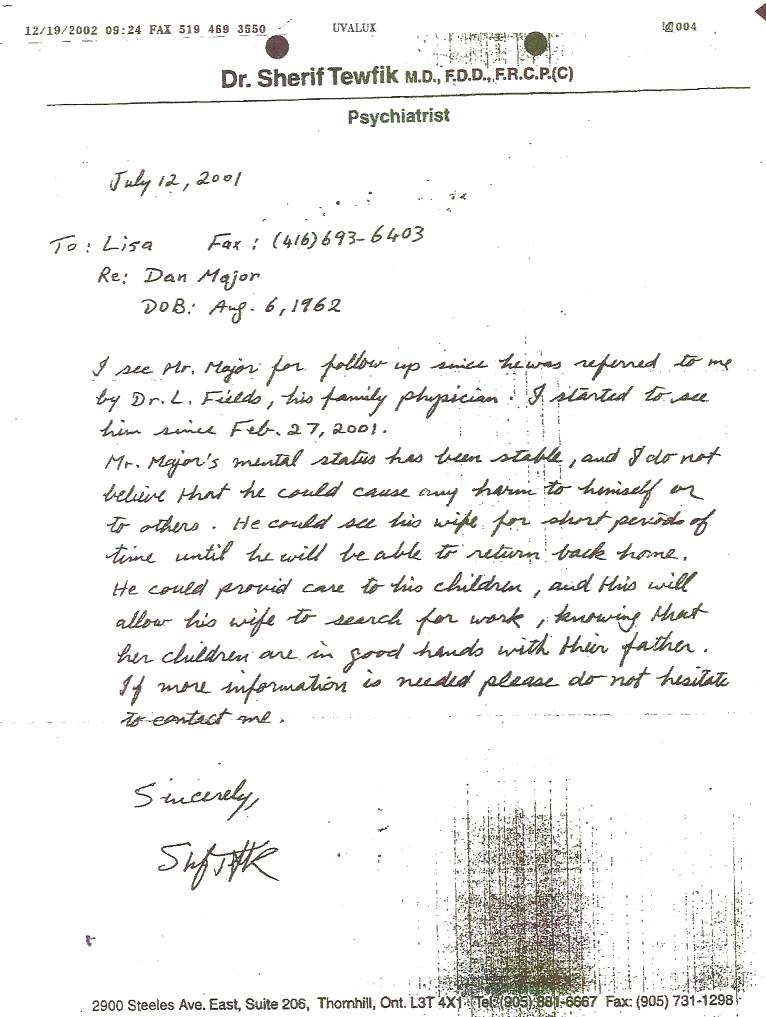 12/19/2002 09:24 FAX 519 469 3550 UVALUX 004
Dr. Sherif Tewfik M.D., F.D.D., F.R.C.P.(C)
Psychiatrist
July 12, 2001
To: Lisa Fax: (416) 693-6403
Re: Dan Major
DOB: Aug. 6, 1962
I see Mr. Major for follow up since he was referred to me
by Dr. L. Fields, his family physician. I started to see
him since Feb. 27, 2001.
Mr. Major's mental status has been stable, and I do not
believe that he could cause any harm to himself or
to others. He could see his wife for short periods of
time until he will be able to return back home.
He could provid care to his children, and this will
allow his wife to search for work, knowing that
her children are in good hands with their father.
If more information is needed please do not hesitate
to contact me.
Sincerely,
2900 Steeles Ave. East, Suite 206, Thornhill, Ont. L3T 4X1 Tel: (905) 881-6667 Fax: (905) 731-1298